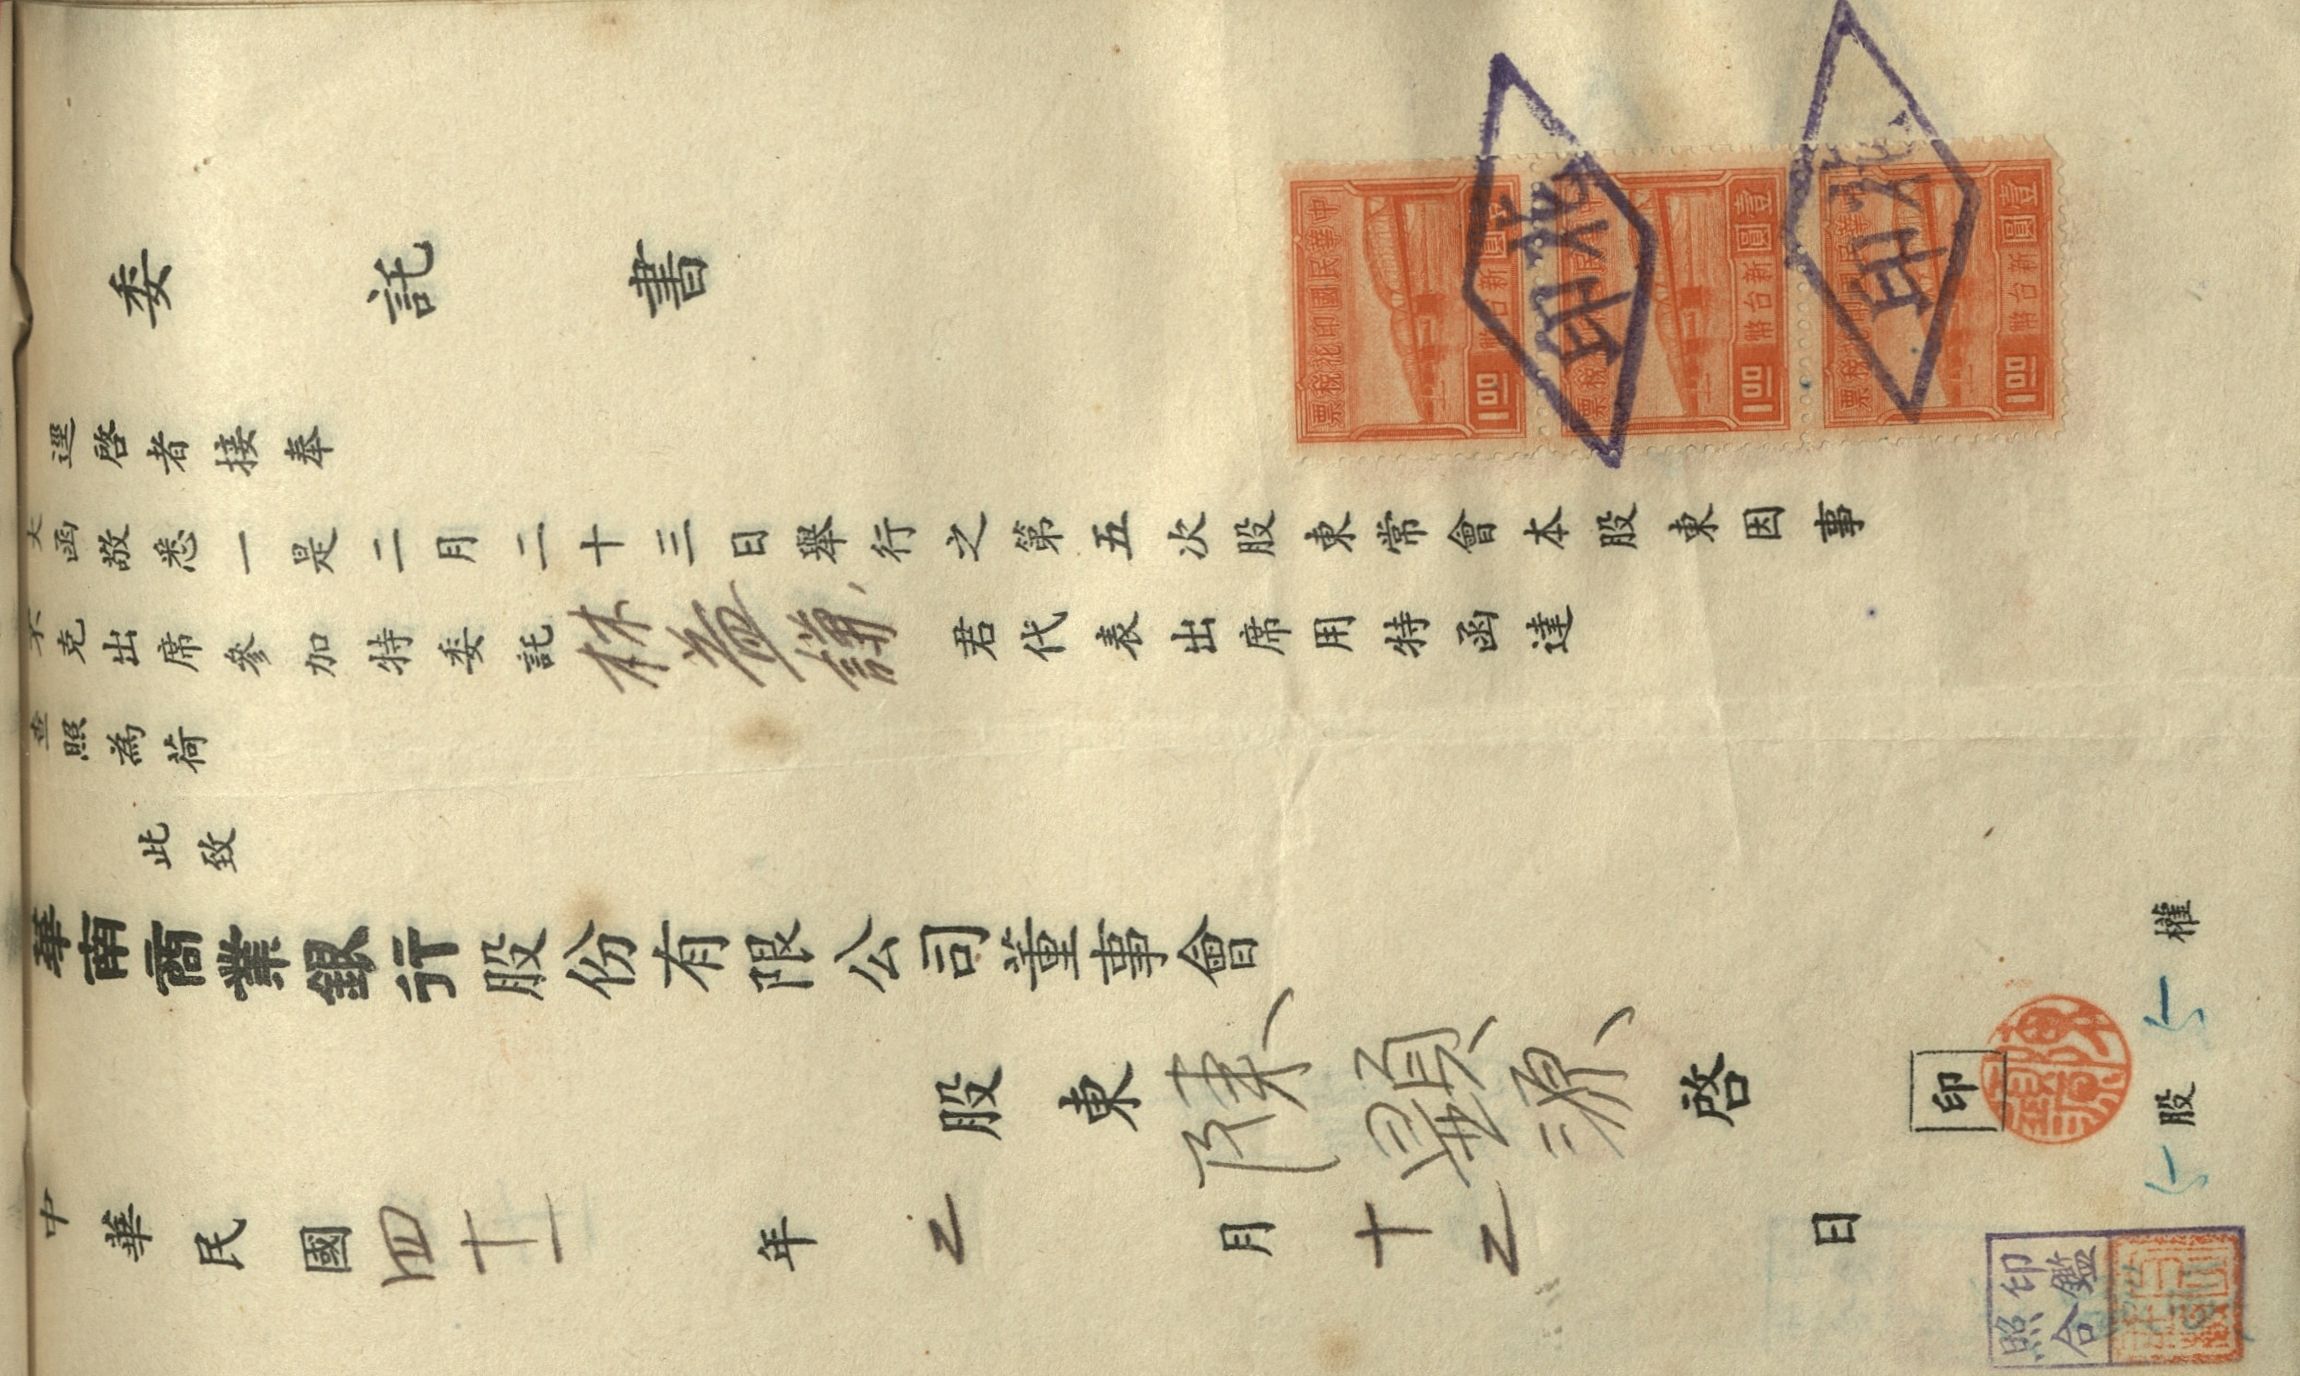 委託書
逕啓者接奉
大函敬悉一是二月二十三日舉行之第五次股東常會本股東因事
不克出席參加特委託林 君代表出席用特函達
查照為荷
此致
華南商業銀行股份有限公司董事會
股東陳顯源啓 印
5股 5權
中華民國四十一年2月十2日
中華民國印花稅票
壹圓 新台幣
1.00
中華民國印花稅票
壹圓 新台幣
1.00
中華民國印花稅票
壹圓 新台幣
1.00
印花
印花
印鑑
照合